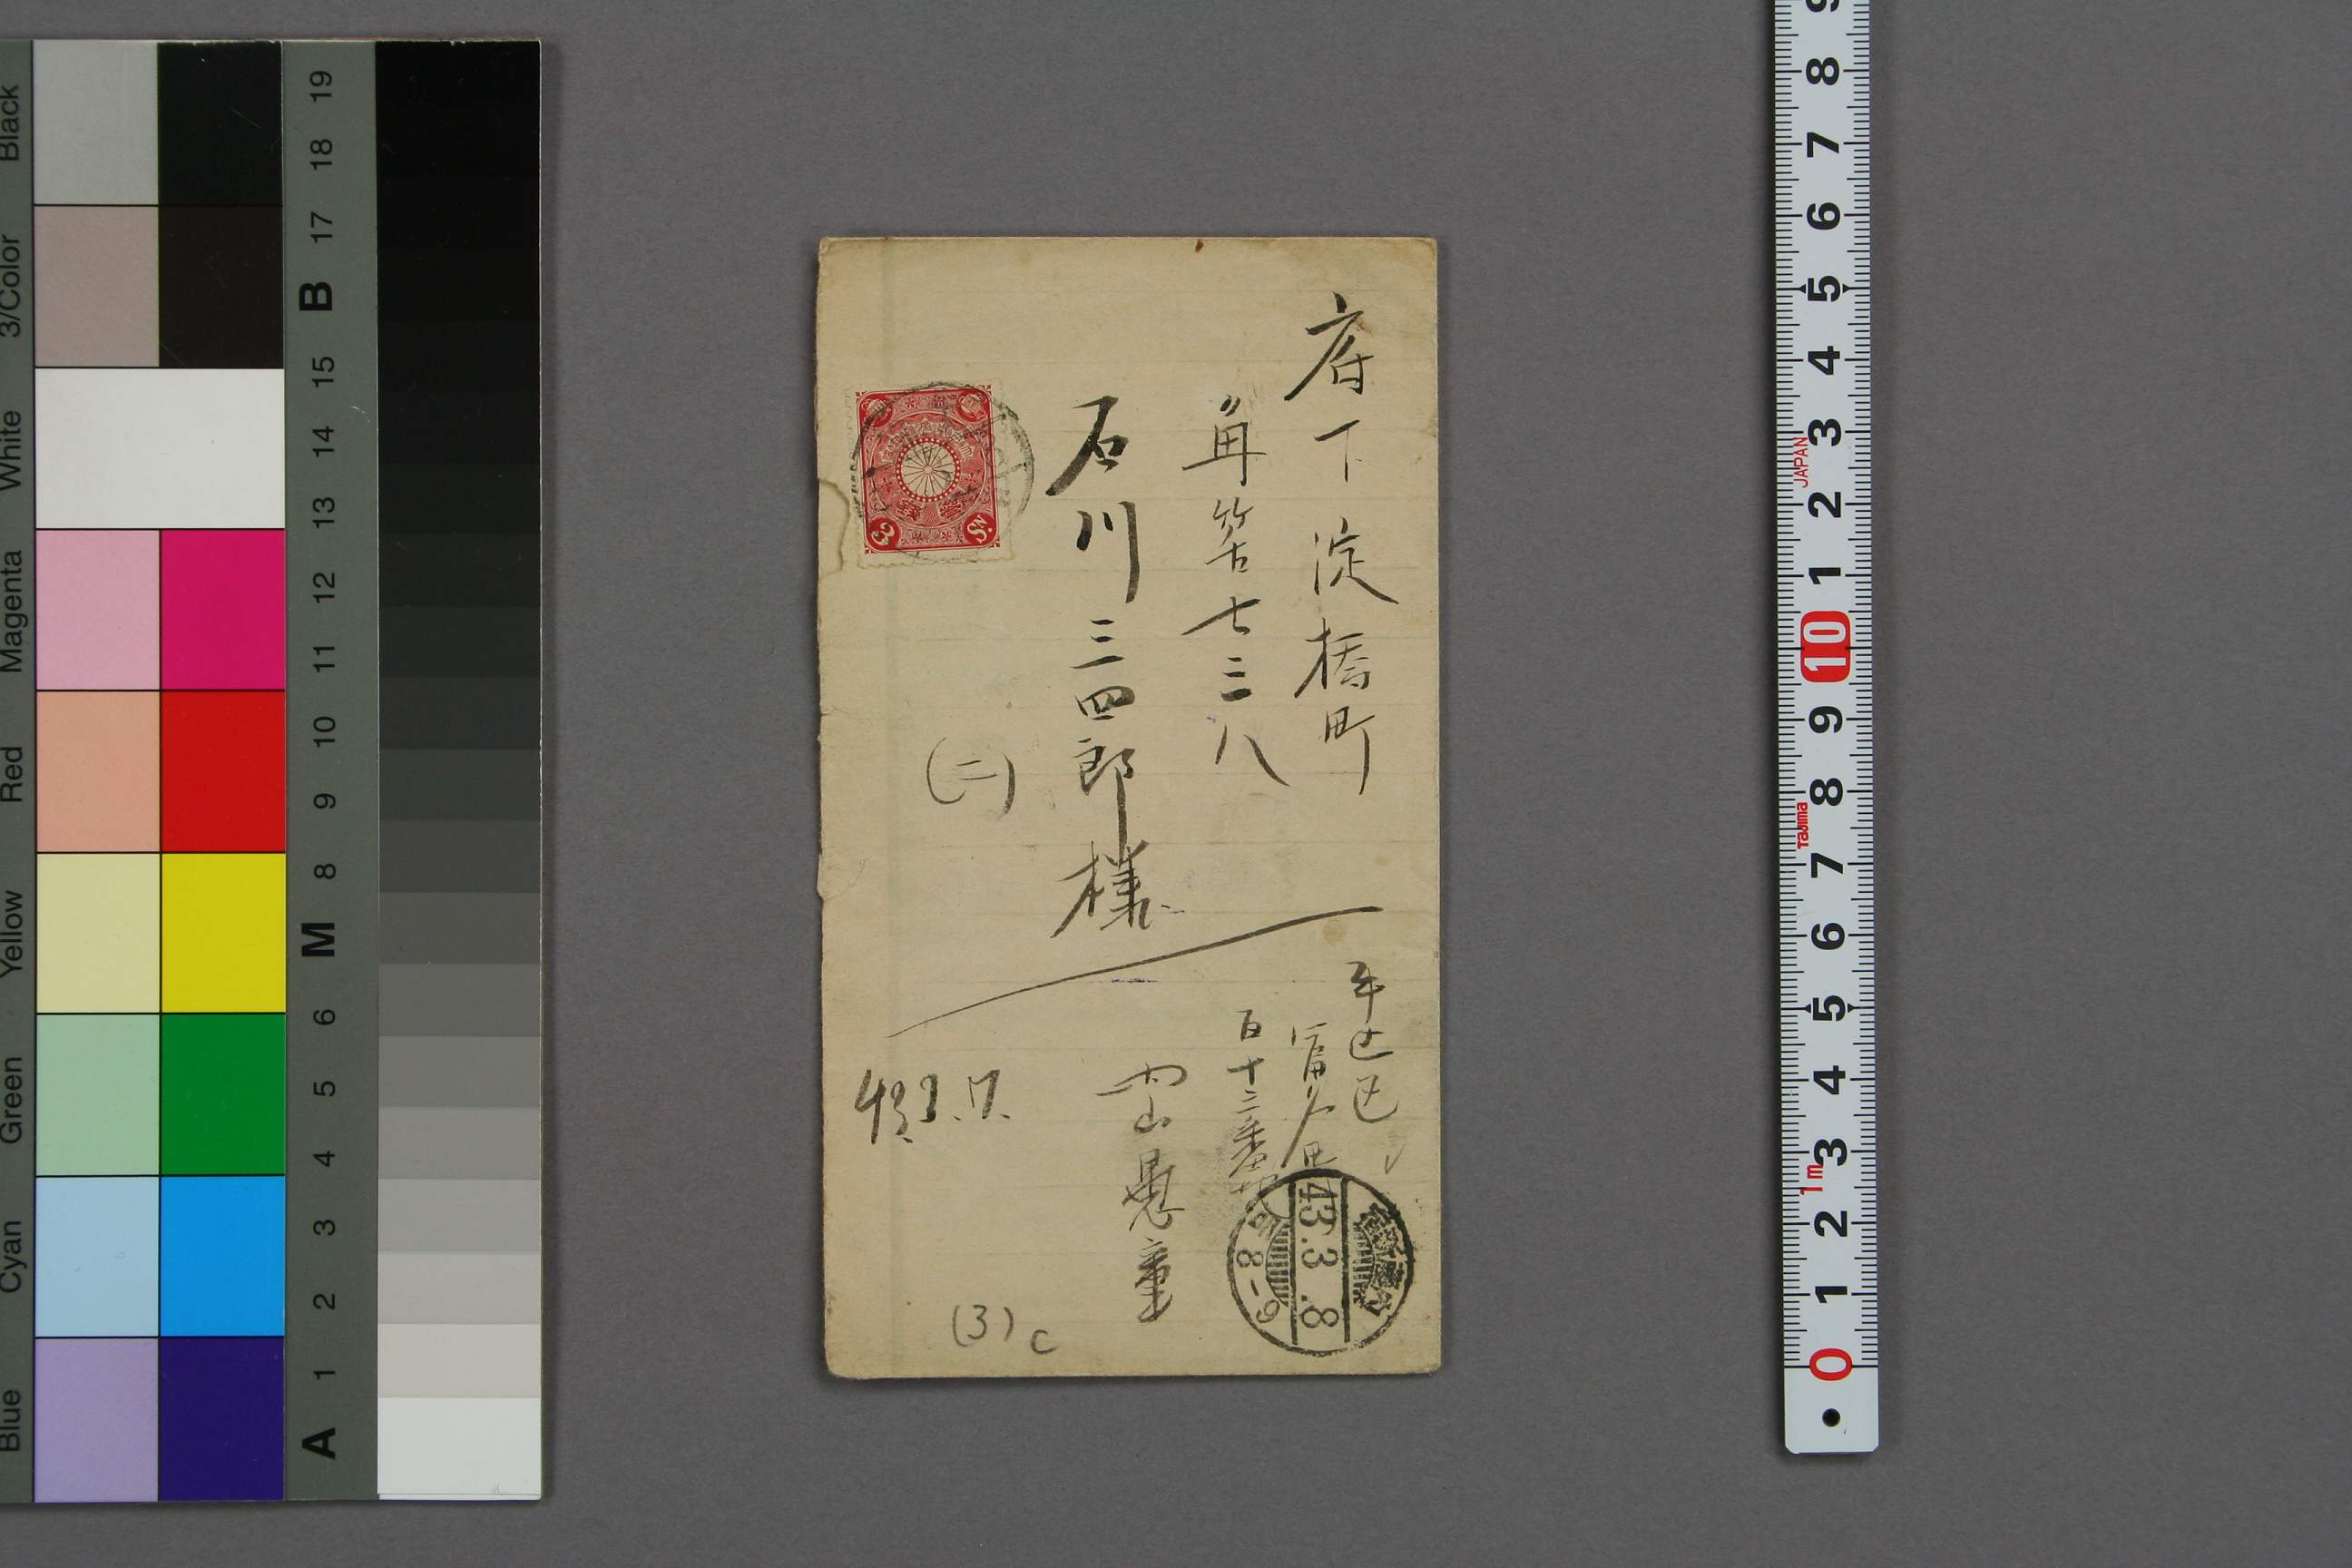 府下淀橋町
〃角筈七三八
石川三四郎様
(二)
牛込区
富久町
百十三番地
内山愚童
43.3.7.
43.3.8
8-9
(3) c
3 Sn.
Blue Cyan Green Yellow Red Magenta White 3/Color Black
A 1 2 3 4 5 6 M 8 9 10 11 12 13 14 15 B 17 18 19
0 1 2 3 4 5 6 7 8 9 10 1 2 3 4 5 6 7 8 9
1m
Tajima
JAPAN